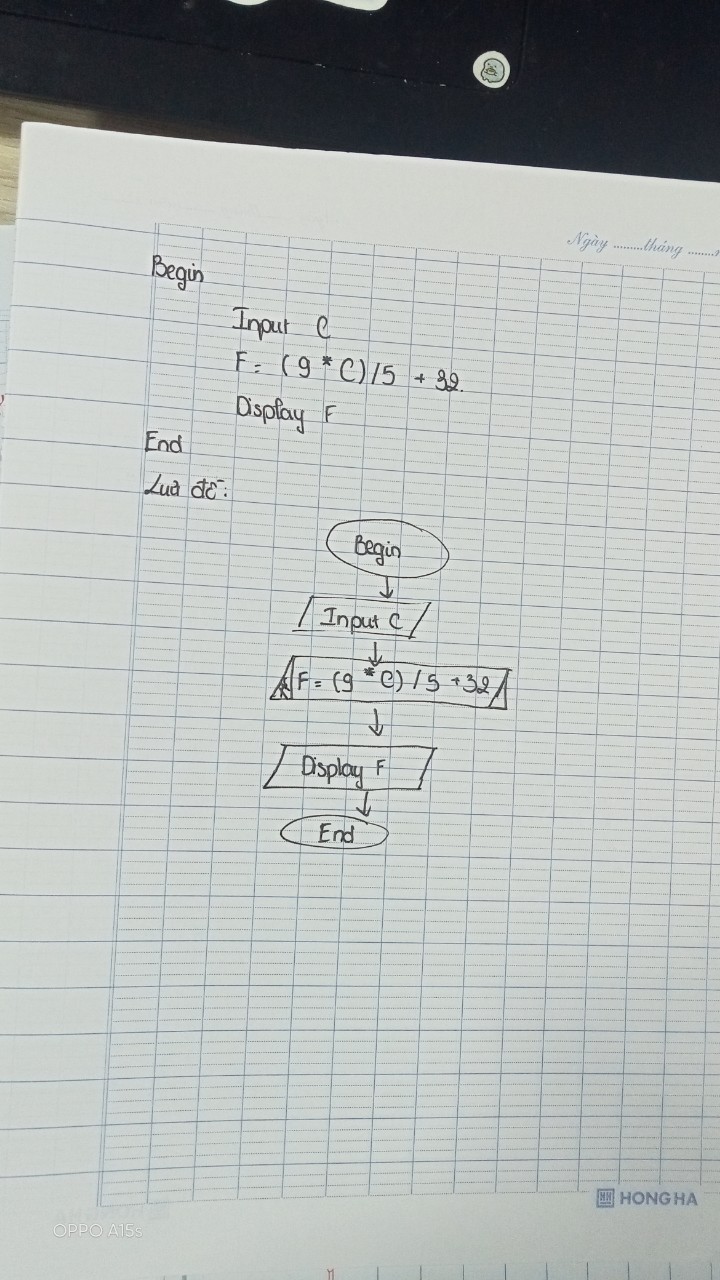 Ngày ........tháng .......
Begin
Input C
F = (9 * C) / 5 + 32.
Display F
End
Luư đồ:
Begin
Input C
F = (9 * C) / 5 + 32
Display F
End
HONG HA
OPPO A15s